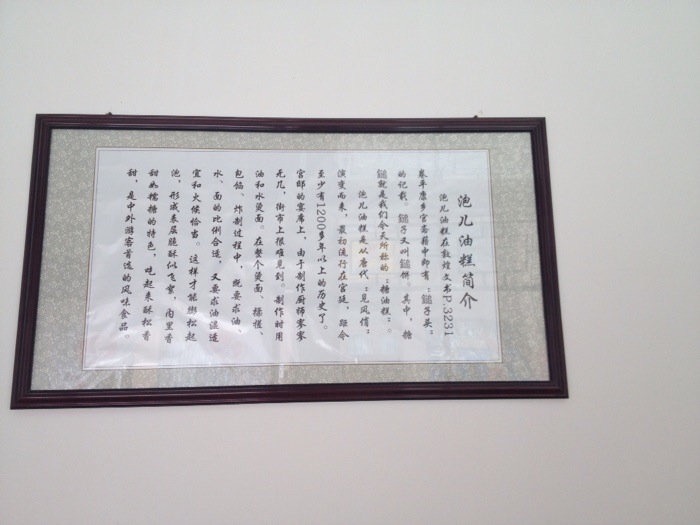 泡儿油糕简介
泡儿油糕在敦煌文书P.3231
卷平康乡官斋籍中即有“鎚子头”
的记载。鎚子又叫鎚饼。其中，糖
鎚就是我们今天所称的“糖油糕”。
泡儿油糕是从唐代“见风消”
演变而来，最初流行在宫廷，距今
至少有1200多年以上的历史了。
官邸的宴席上，由于制作厨师寥寥
无几，街市上很难见到。制作时用
油和水烫面。在整个烫面、揉搓、
包馅、炸制过程中，既要求油、
水、面的比例合适，又要求油温适
宜和火候恰当。这样才能绷松起
泡，形成表层脆酥似飞絮，内里香
甜如糯糖的特色，吃起来酥松香
甜，是中外游客首选的风味食品。